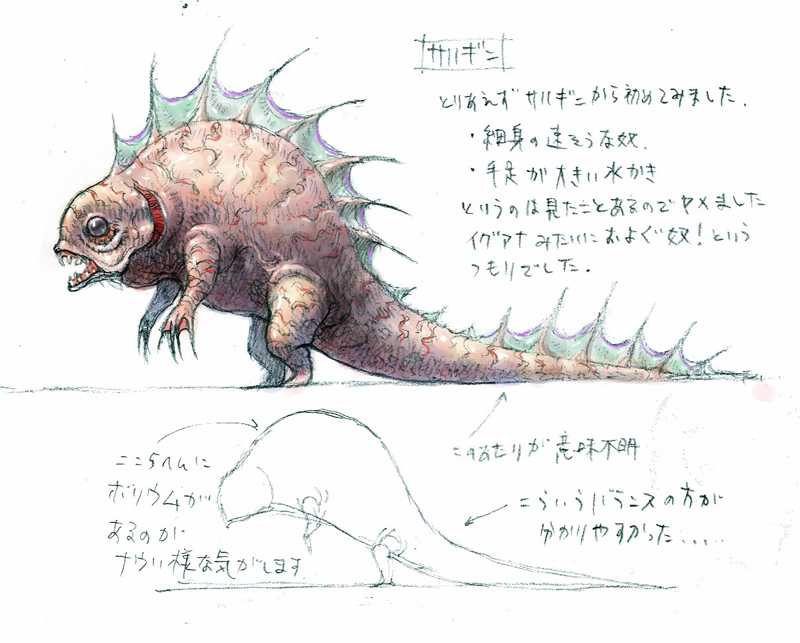 サハギン
とりあえずサハギンから初めてみました.
・細身の速そうな奴.
・手足が大きい水かき
というのは見たことあるのでヤメました
イグアナみたいにおよぐ奴!という
つもりでした.
このあたりが意味不明
ここらへんに
ボリウムが
あるのが
ナウい様な気がします
こういうバランスの方が
分かりやすかった.....